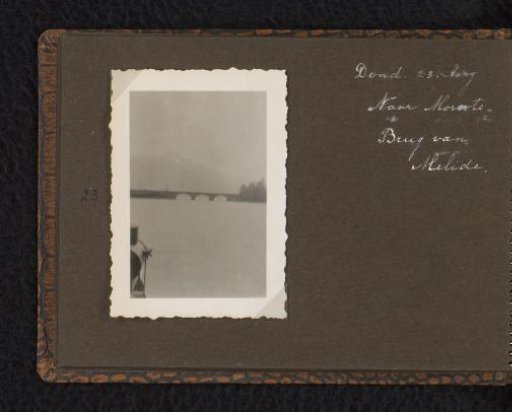 Dond. 23 Aug
Naar Morcote.
Brug van
Melide.
23